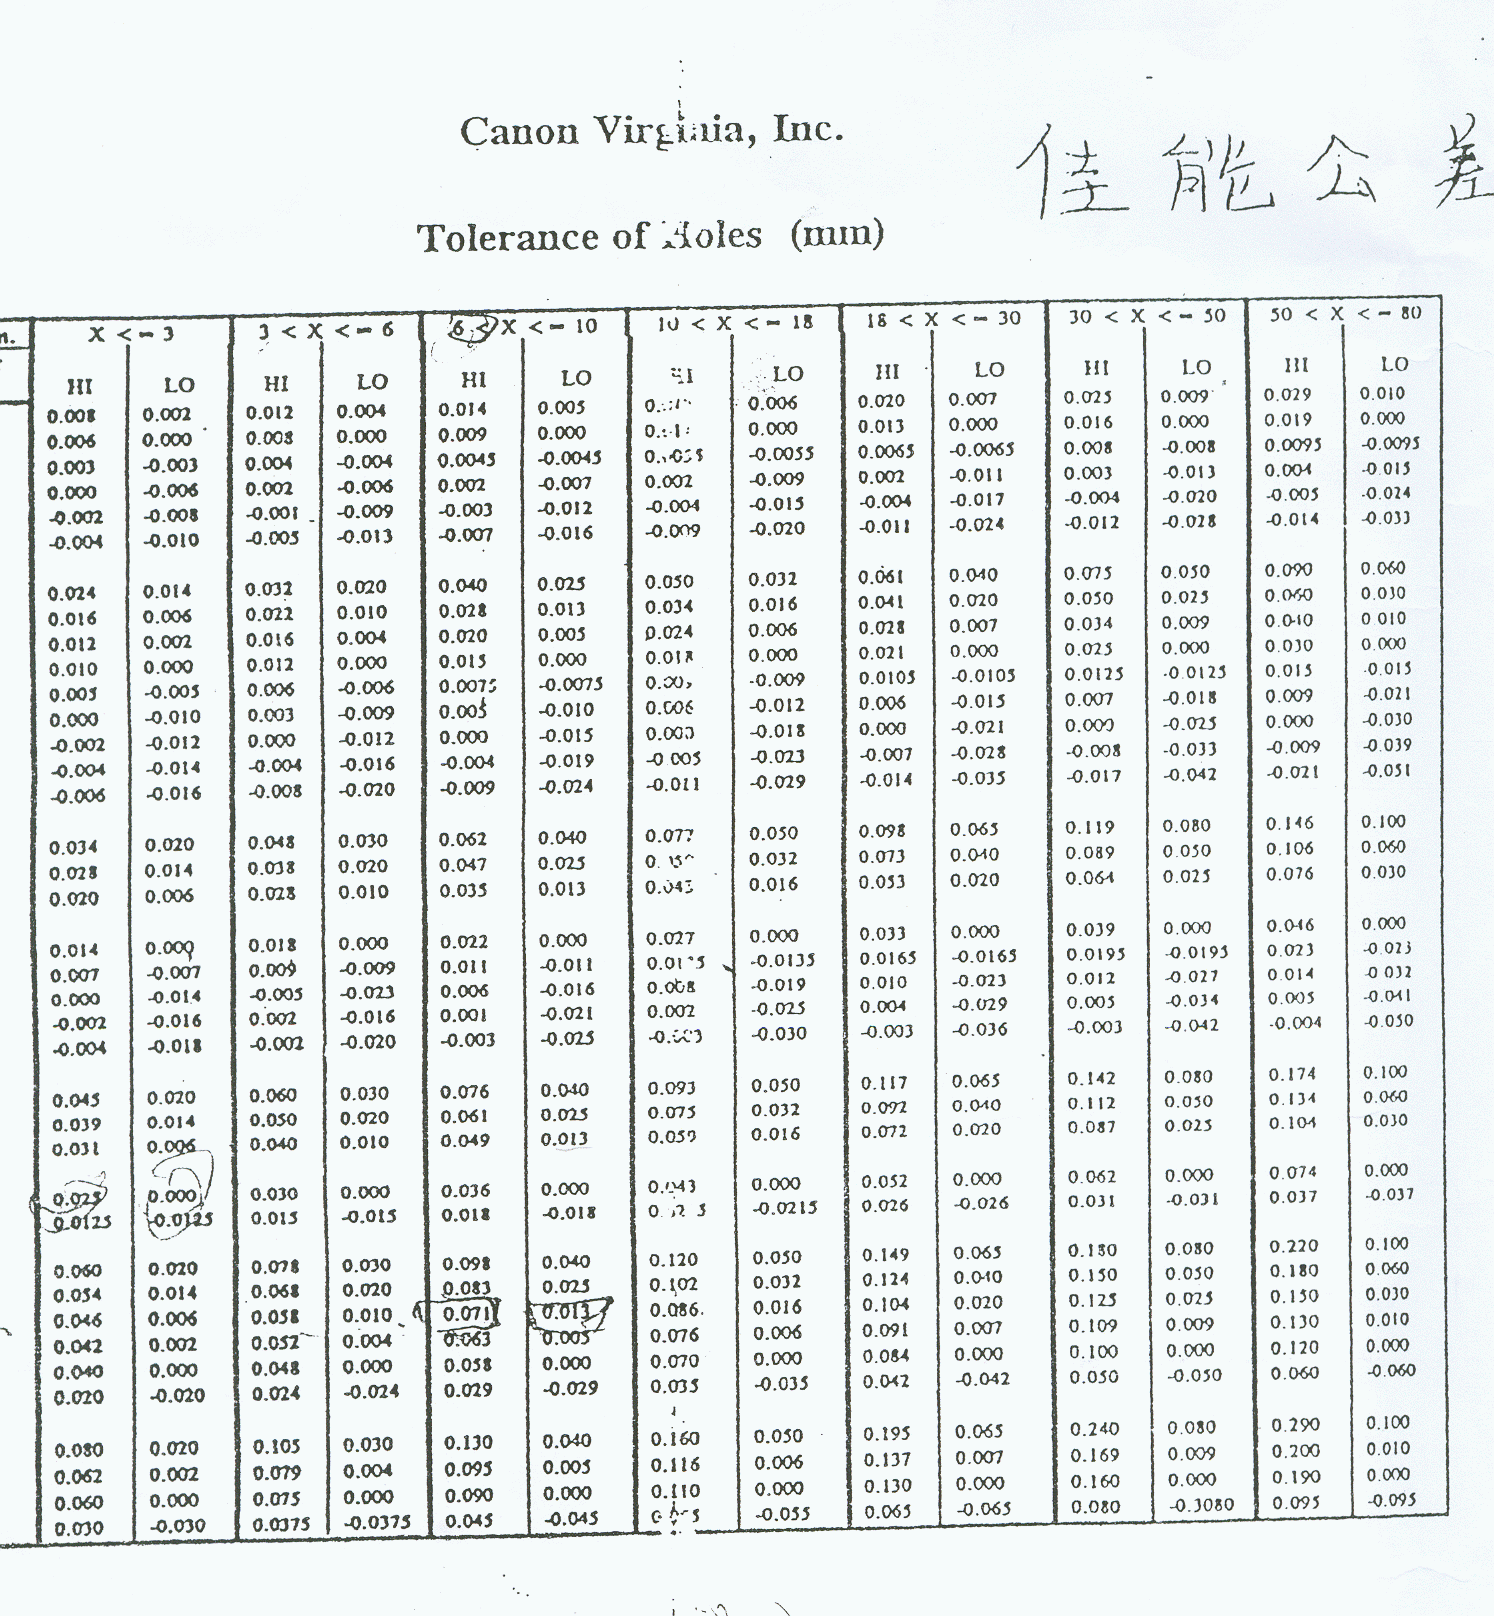 Canon Virginia, Inc.
佳能公差
Tolerance of Holes (mm)
X <= 3 3 < X <= 6 6 < X <= 10 10 < X <= 18 18 < X <= 30 30 < X <= 50 50 < X <= 80
HI LO HI LO HI LO HI LO HI LO HI LO HI LO
0.008 0.002 0.012 0.004 0.014 0.005 0.006 0.020 0.007 0.025 0.009 0.029 0.010
0.006 0.000 0.008 0.000 0.009 0.000 0.000 0.013 0.000 0.016 0.000 0.019 0.000
0.003 -0.003 0.004 -0.004 0.0045 -0.0045 -0.0055 0.0065 -0.0065 0.008 -0.008 0.0095 -0.0095
0.000 -0.006 0.002 -0.006 0.002 -0.007 0.002 -0.009 0.002 -0.011 0.003 -0.013 0.004 -0.015
-0.002 -0.008 -0.001 -0.009 -0.003 -0.012 -0.004 -0.015 -0.004 -0.017 -0.004 -0.020 -0.005 -0.024
-0.004 -0.010 -0.005 -0.013 -0.007 -0.016 -0.009 -0.020 -0.011 -0.024 -0.012 -0.028 -0.014 -0.033
0.024 0.014 0.032 0.020 0.040 0.025 0.050 0.032 0.061 0.040 0.075 0.050 0.090 0.060
0.016 0.006 0.022 0.010 0.028 0.013 0.034 0.016 0.041 0.020 0.050 0.025 0.060 0.030
0.012 0.002 0.016 0.004 0.020 0.005 0.024 0.006 0.028 0.007 0.034 0.009 0.040 0.010
0.010 0.000 0.012 0.000 0.015 0.000 0.018 0.000 0.021 0.000 0.025 0.000 0.030 0.000
0.005 -0.005 0.006 -0.006 0.0075 -0.0075 -0.009 0.0105 -0.0105 0.0125 -0.0125 0.015 -0.015
0.000 -0.010 0.003 -0.009 0.005 -0.010 0.006 -0.012 0.006 -0.015 0.007 -0.018 0.009 -0.021
-0.002 -0.012 0.000 -0.012 0.000 -0.015 0.000 -0.018 0.000 -0.021 0.000 -0.025 0.000 -0.030
-0.004 -0.014 -0.004 -0.016 -0.004 -0.019 -0.005 -0.023 -0.007 -0.028 -0.008 -0.033 -0.009 -0.039
-0.006 -0.016 -0.008 -0.020 -0.009 -0.024 -0.011 -0.029 -0.014 -0.035 -0.017 -0.042 -0.021 -0.051
0.034 0.020 0.048 0.030 0.062 0.040 0.077 0.050 0.098 0.065 0.119 0.080 0.146 0.100
0.028 0.014 0.038 0.020 0.047 0.025 0.032 0.073 0.040 0.089 0.050 0.106 0.060
0.020 0.006 0.028 0.010 0.035 0.013 0.043 0.016 0.053 0.020 0.064 0.025 0.076 0.030
0.014 0.000 0.018 0.000 0.022 0.000 0.027 0.000 0.033 0.000 0.039 0.000 0.046 0.000
0.007 -0.007 0.009 -0.009 0.011 -0.011 -0.0135 0.0165 -0.0165 0.0195 -0.0195 0.023 -0.023
0.000 -0.014 -0.005 -0.023 0.006 -0.016 0.008 -0.019 0.010 -0.023 0.012 -0.027 0.014 -0.032
-0.002 -0.016 0.002 -0.016 0.001 -0.021 0.002 -0.025 0.004 -0.029 0.005 -0.034 0.005 -0.041
-0.004 -0.018 -0.002 -0.020 -0.003 -0.025 -0.030 -0.003 -0.036 -0.003 -0.042 -0.004 -0.050
0.045 0.020 0.060 0.030 0.076 0.040 0.093 0.050 0.117 0.065 0.142 0.080 0.174 0.100
0.039 0.014 0.050 0.020 0.061 0.025 0.075 0.032 0.092 0.040 0.112 0.050 0.134 0.060
0.031 0.006 0.040 0.010 0.049 0.013 0.059 0.016 0.072 0.020 0.087 0.025 0.104 0.030
0.025 0.000 0.030 0.000 0.036 0.000 0.043 0.000 0.052 0.000 0.062 0.000 0.074 0.000
0.0125 -0.0125 0.015 -0.015 0.018 -0.018 -0.0215 0.026 -0.026 0.031 -0.031 0.037 -0.037
0.060 0.020 0.078 0.030 0.098 0.040 0.120 0.050 0.149 0.065 0.180 0.080 0.220 0.100
0.054 0.014 0.068 0.020 0.083 0.025 0.102 0.032 0.124 0.040 0.150 0.050 0.180 0.060
0.046 0.006 0.058 0.010 0.071 0.013 0.086 0.016 0.104 0.020 0.125 0.025 0.150 0.030
0.042 0.002 0.052 0.004 0.063 0.005 0.076 0.006 0.091 0.007 0.109 0.009 0.130 0.010
0.040 0.000 0.048 0.000 0.058 0.000 0.070 0.000 0.084 0.000 0.100 0.000 0.120 0.000
0.020 -0.020 0.024 -0.024 0.029 -0.029 0.035 -0.035 0.042 -0.042 0.050 -0.050 0.060 -0.060
0.080 0.020 0.105 0.030 0.130 0.040 0.160 0.050 0.195 0.065 0.240 0.080 0.290 0.100
0.062 0.002 0.079 0.004 0.095 0.005 0.116 0.006 0.137 0.007 0.169 0.009 0.200 0.010
0.060 0.000 0.075 0.000 0.090 0.000 0.110 0.000 0.130 0.000 0.160 0.000 0.190 0.000
0.030 -0.030 0.0375 -0.0375 0.045 -0.045 -0.055 0.065 -0.065 0.080 -0.3080 0.095 -0.095